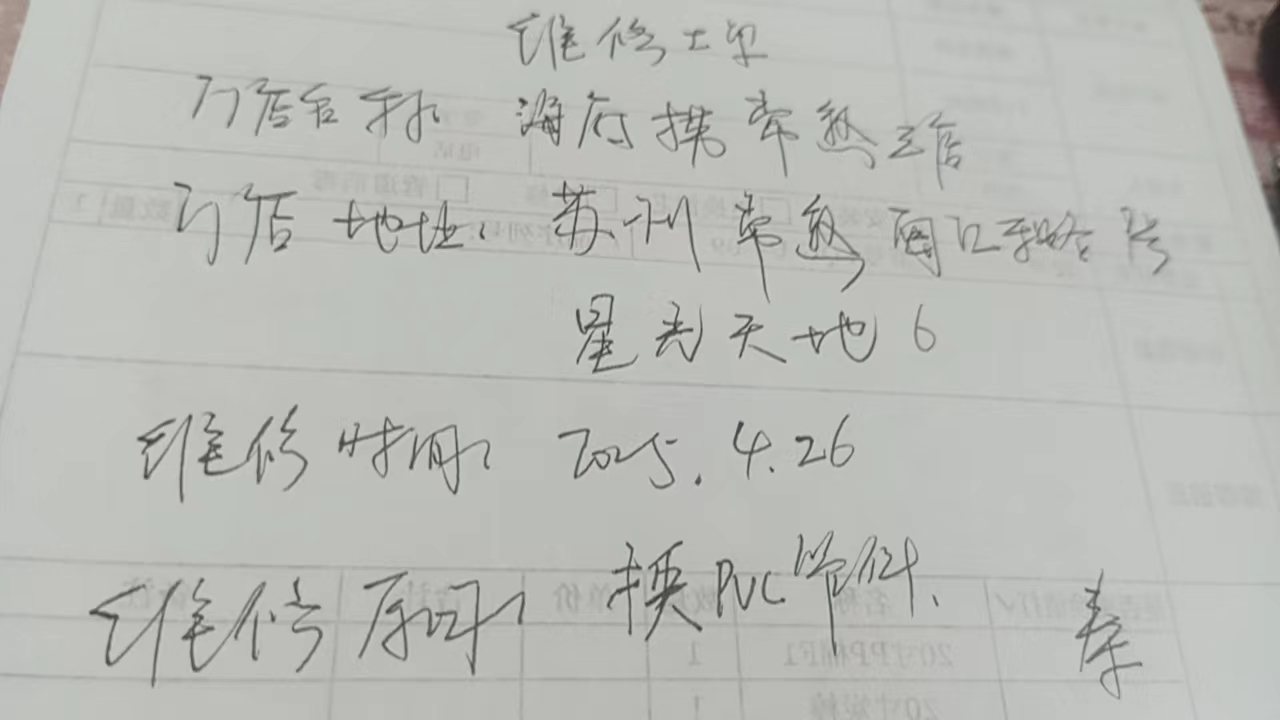 维修单
门店名称: 海底捞常熟三店
门店地址: 苏州常熟
星光天地 6
维修时间: 2025.4.26
维修原因: 换PVC管件. 秦